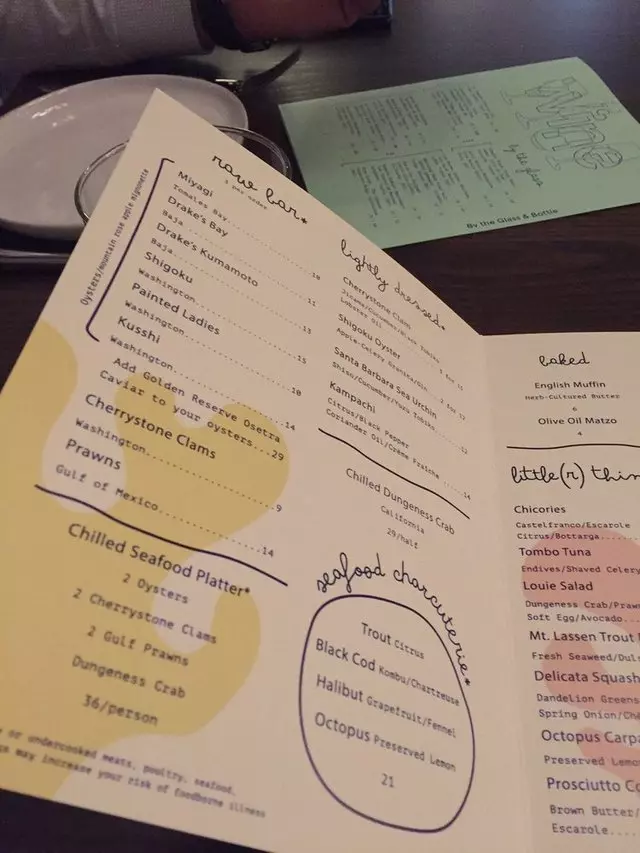 raw bar*
Oysters/mountain rose apple mignonette
Miyagi
Tomales Bay..........10
Drake's Bay
Baja..........11
Drake's Kumamoto
Baja..........13
Shigoku
Washington..........15
Painted Ladies
Washington..........10
Kusshi
Washington..........14
Add Golden Reserve Osetra
Caviar to your oysters...29
Cherrystone Clams
Washington..........9
Prawns
Gulf of Mexico..........14
Chilled Seafood Platter*
2 Oysters
2 Cherrystone Clams
2 Gulf Prawns
Dungeness Crab
36/person
or undercooked meats, poultry, seafood,
may increase your risk of foodborne illness
lightly dressed*
Cherrystone Clam
Jicama/Cucumber/Black Tobiko
Lobster Oil
Shigoku Oyster
Apple-Celery
Santa Barbara Sea Urchin
Shiso/Cucumber/Yuzu Tobiko..12
Kampachi
Citrus/Black Pepper
Coriander Oil/Crème Fraîche....14
Chilled Dungeness Crab
California
29/half
seafood charcuterie*
Trout Citrus
Black Cod Kombu/Chartreuse
Halibut Grapefruit/Fennel
Octopus Preserved Lemon
21
baked
English Muffin
Herb-Cultured Butter
6
Olive Oil Matzo
4
little(r) thin
Chicories
Castelfranco/Escarole
Citrus/Bottarga...
Tombo Tuna
Endives/Shaved Celery
Louie Salad
Dungeness Crab/Praw
Soft Egg/Avocado...
Mt. Lassen Trout
Fresh Seaweed/Duls
Delicata Squash
Dandelion Greens
Spring Onion/Ch
Octopus Carpa
Preserved Lemo
Prosciutto Co
Brown Butter/
Escarole....
wine
by the glass
By the Glass & Bottle